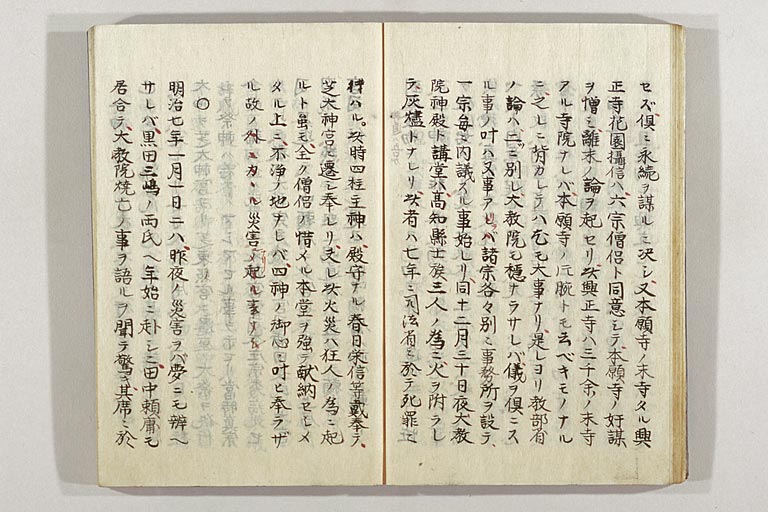 セズ、倶ニ永続ヲ謀ルニ決シ、又本願寺ノ末寺タル興
正寺花園攝信ハ六宗僧侶ト同意シテ、本願寺ノ奸謀
ヲ憎ミ離末ノ論ヲ起セリ、此興正寺ハ三千余ノ末寺
アル寺院ナレバ、本願寺ノ片腕トモ云ベキモノナル
ニ、之レニ背カレテハ尤モ大事ナリ、是レヨリ教部省
ノ論ハ二ニ別レ、大教院モ穏ナラサレバ、儀ヲ倶ニス
ル事ノ叶ハヌ事アレバ、諸宗各々別ニ事務所ヲ設テ、
一宗毎ニ内議スル事始レリ、同十二月三十日夜大教
院神殿ト講堂ハ高知縣士族三人ノ為ニ火ヲ附ラレ
テ灰燼トナレリ、此者ハ七年ニ司法省ニ於テ死罪ニ
行ハル、此時四柱主神ハ殿守ナル春日栄信等戴奉テ、
芝大神宮ニ遷シ奉レリ、夫レ此火災ハ狂人ノ為ニ起
ルト虽モ、全ク僧侶ノ惜メル本堂ヲ強テ献納セシメ
タル上ニ不浄ノ地ナレバ、四神ノ御心ニ叶ヒ奉ラザ
ル故ノ外ニカヽル災害ノ起ル事
〇
明治七年一月一日ニハ、昨夜ノ災害ヲバ夢ニモ辨ヘ
サレバ、黒田三嶋ノ両氏ヘ年始ニ赴シニ、田中頼庸モ
居合テ、大教院焼亡ノ事ヲ語ルヲ聞テ驚キ、其席ニ於